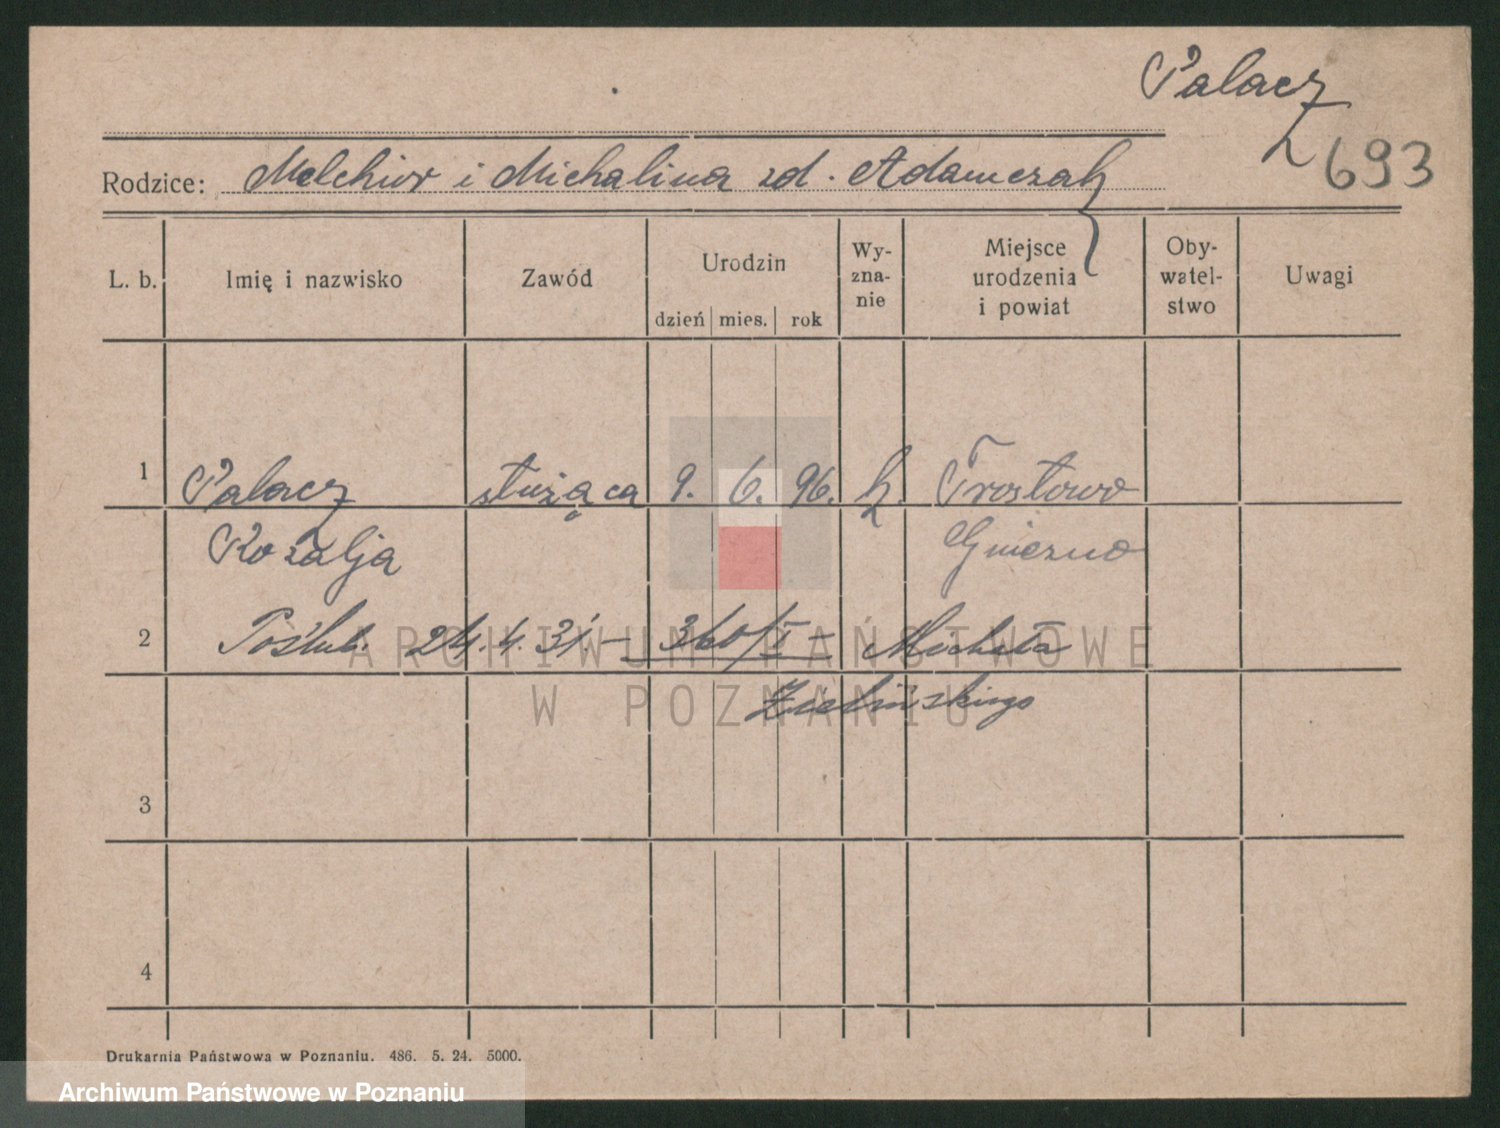 Palacz
693
Rodzice: Melchior i Michalina zd. Adamczak
L. b.
Imię i nazwisko
Zawód
Urodzin
dzień mies. rok
Wy-
zna-
nie
Miejsce
urodzenia
i powiat
Oby-
watel-
stwo
Uwagi
1 Palacz służąca 9. 6. 96. k. Trostowo
Rozalja Gniezno
2 Poślub. 24. 4. 31. – 360/I – Michała
Zielińskiego
3
4
ARCHIWUM PAŃSTWOWE
W POZNANIU
Drukarnia Państwowa w Poznaniu. 486. 5. 24. 5000.
Archiwum Państwowe w Poznaniu